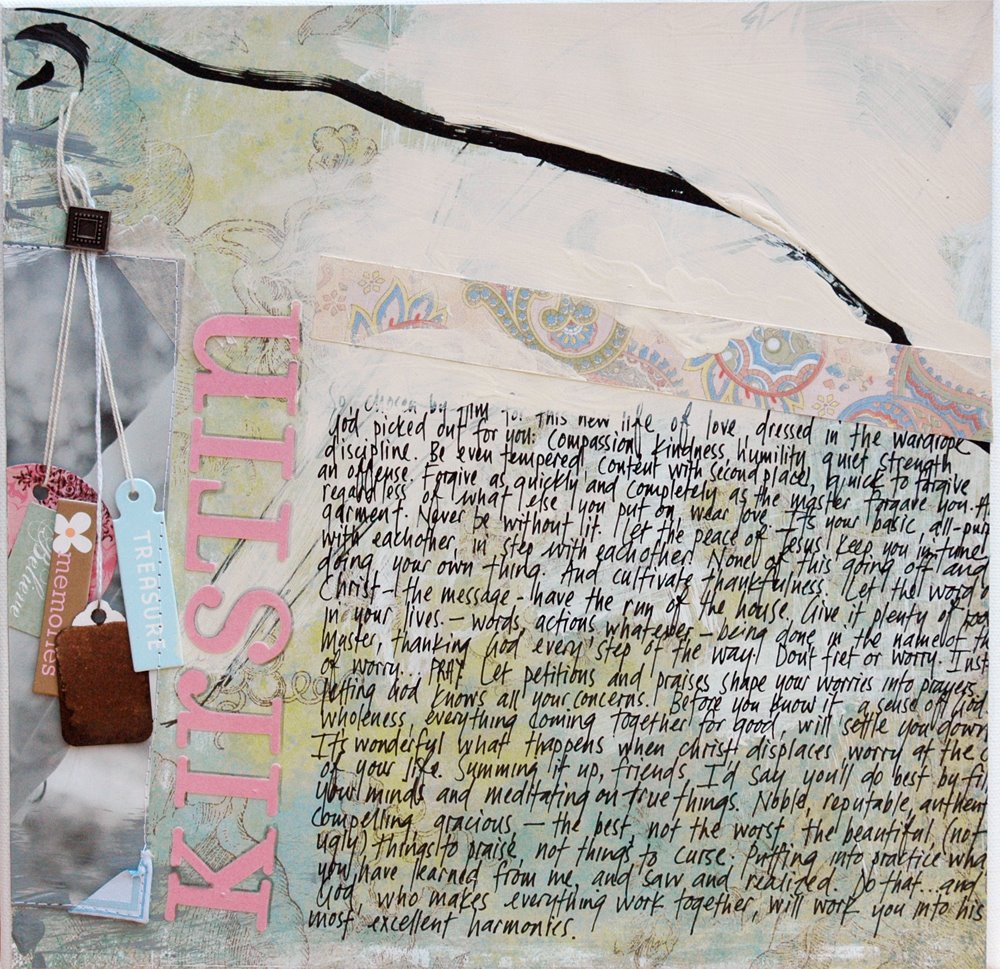 KIrSTIn
Believe
memories
TREASURE
So, chosen by Him for this new life of love, dressed in the wardrobe
God picked out for you: compassion, kindness, humility, quiet strength,
discipline. Be even tempered, content with second place, quick to forgive
an offense. Forgive as quickly and completely as the master forgave you.
regardless of what else you put on wear love. It's your basic, all-pur
garment. Never be without it. Let the peace of Jesus keep you in tune
with eachother, in step with eachother. None of this going off and
doing your own thing. And cultivate thankfulness. Let the word o
Christ - the message - have the run of the house. Give it plenty of roo
in your lives. - words, actions whatever - being done in the name of th
Master, thanking God every step of the way. Don't fret or worry. Inst
of worry... PRAY. Let petitions and praises shape your worries into prayers,
letting God knows all your concerns. Before you know it a sense off God
wholeness, everything coming together for good, will settle you down
It's wonderful what happens when christ displaces worry at the c
of your life. Summing it up, friends, I'd say you'll do best by fil
your minds and meditating on true things. Noble, reputable, authent
compelling, gracious, - the best, not the worst, the beautiful, (not
ugly) things to praise, not things to curse. Putting into practice wha
you have learned from me, and saw and realized. Do that...and
God, who makes everything work together, will work you into his
most excellent harmonics.